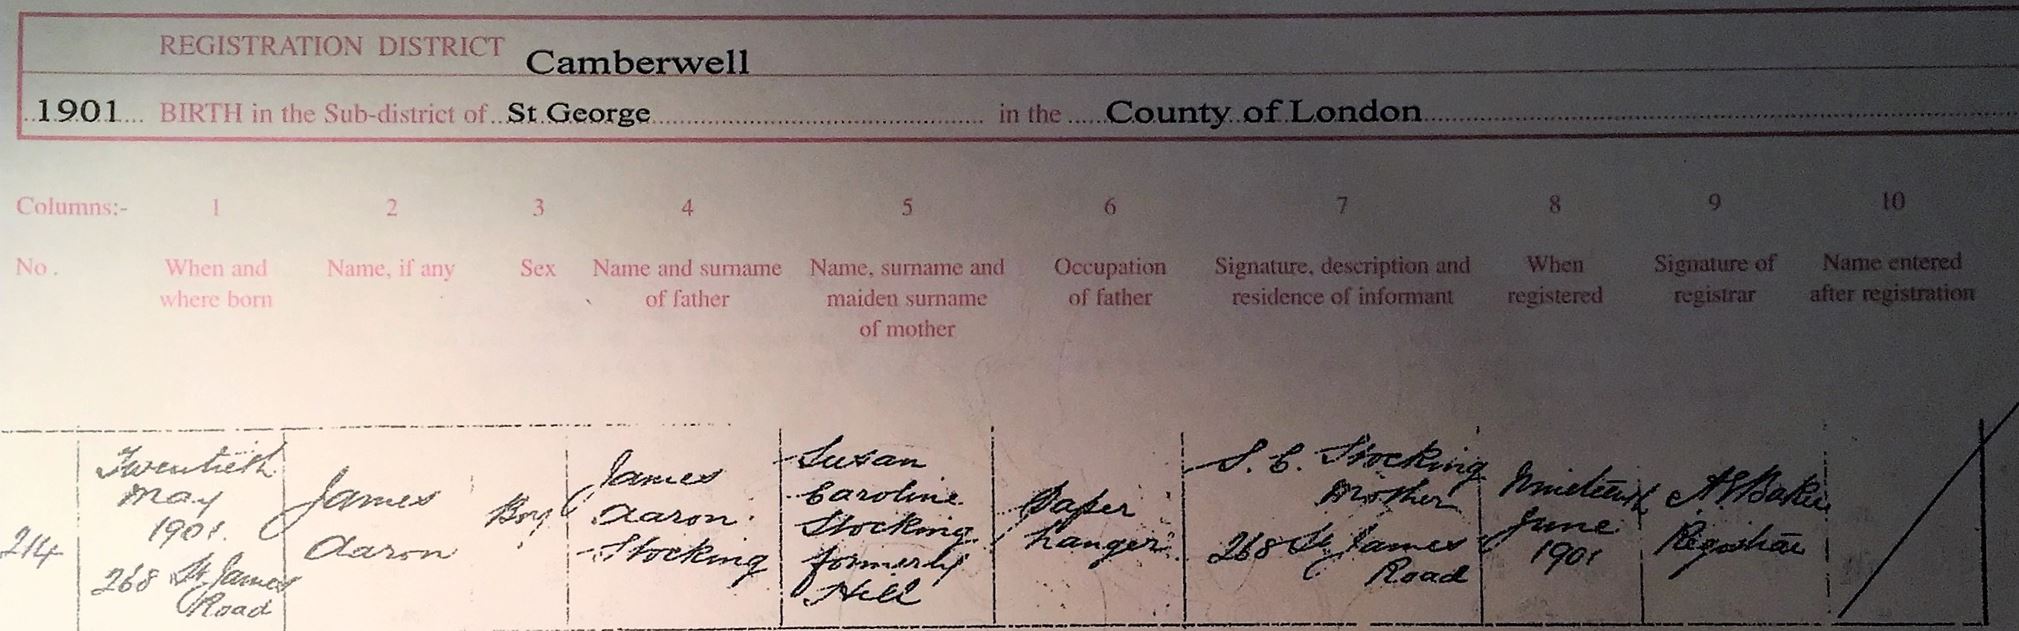 REGISTRATION DISTRICT Camberwell
1901 BIRTH in the Sub-district of St George in the County of London
Columns:- 1 2 3 4 5 6 7 8 9 10
No. When and where born Name, if any Sex Name and surname of father Name, surname and maiden surname of mother Occupation of father Signature, description and residence of informant When registered Signature of registrar Name entered after registration
214
Twentieth
May
1901.
268 St James
Road
James
Aaron
Boy
James
Aaron
Stocking
Susan
Caroline
Stocking
formerly
Hill
Paper
hanger
S. C. Stocking
Mother
268 St James
Road
Nineteenth
June
1901
Baker
Registrar